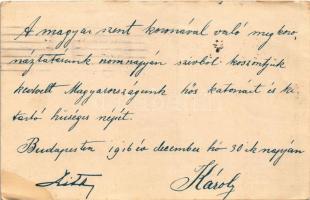 A magyar szent koronával való megkoro-
náztatásunk nómnapján szivből köszöntjük
kedvelt Magyarországunk hős katonáit és ki-
tartó hűséges népét.
Budapesten 1916 év december hó 30-ik napján
Zita Károly